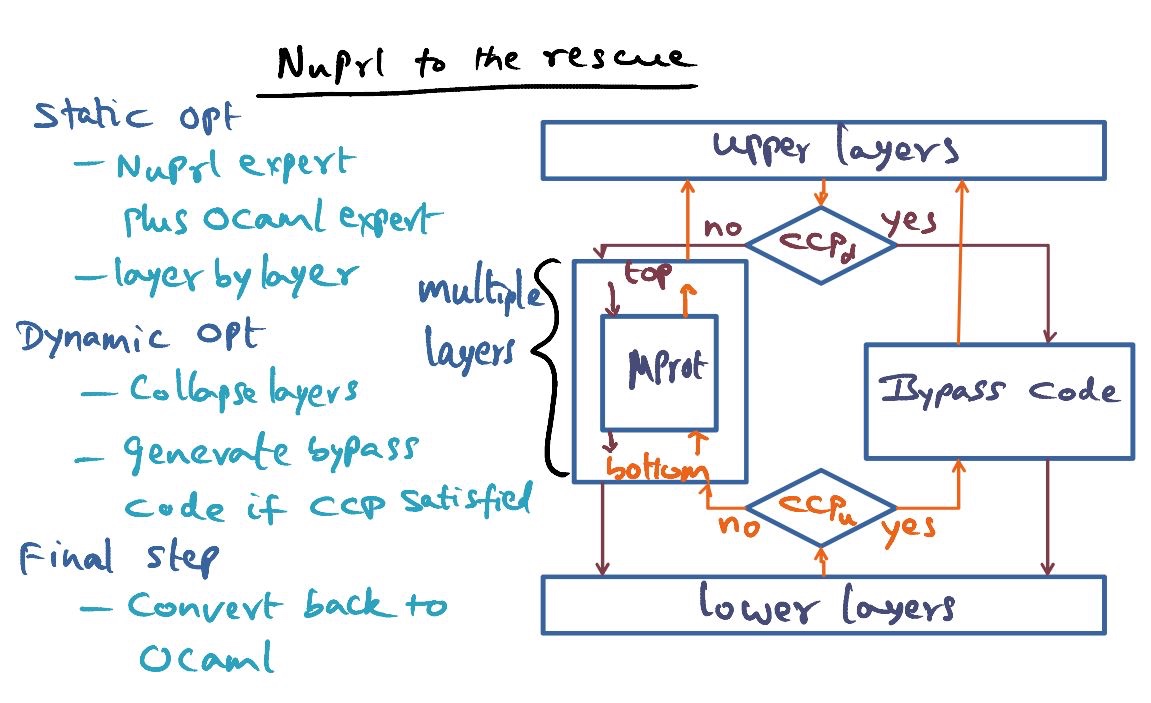 NuPrl to the rescue
Static opt
– NuPrl expert
plus OCaml expert
– layer by layer
Dynamic opt
– Collapse layers
– generate bypass
code if CCP satisfied
Final step
– Convert back to
OCaml
upper layers
no
CCPd
yes
multiple
layers
top
MProt
bottom
Bypass code
no
CCPu
yes
lower layers